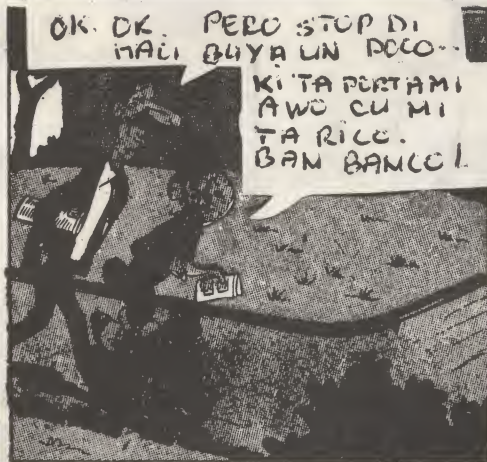 OK. OK. PERO STOP DI
HACI BUYA UN POCO..
KI TA PORTAMI
AWO CU MI
TA RICO.
BAM BANCO!